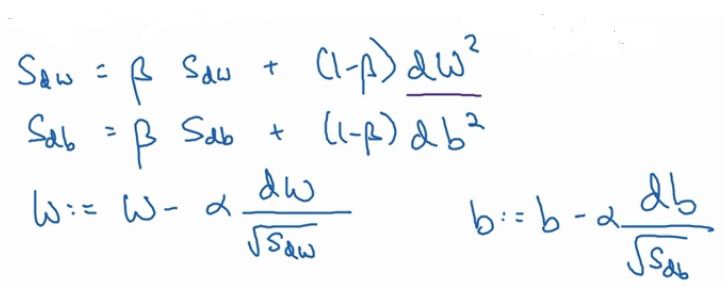 S_dw = β S_dw + (1-β) dw²
S_db = β S_db + (1-β) db²
w := w - α dw/√S_dw b := b - α db/√S_db